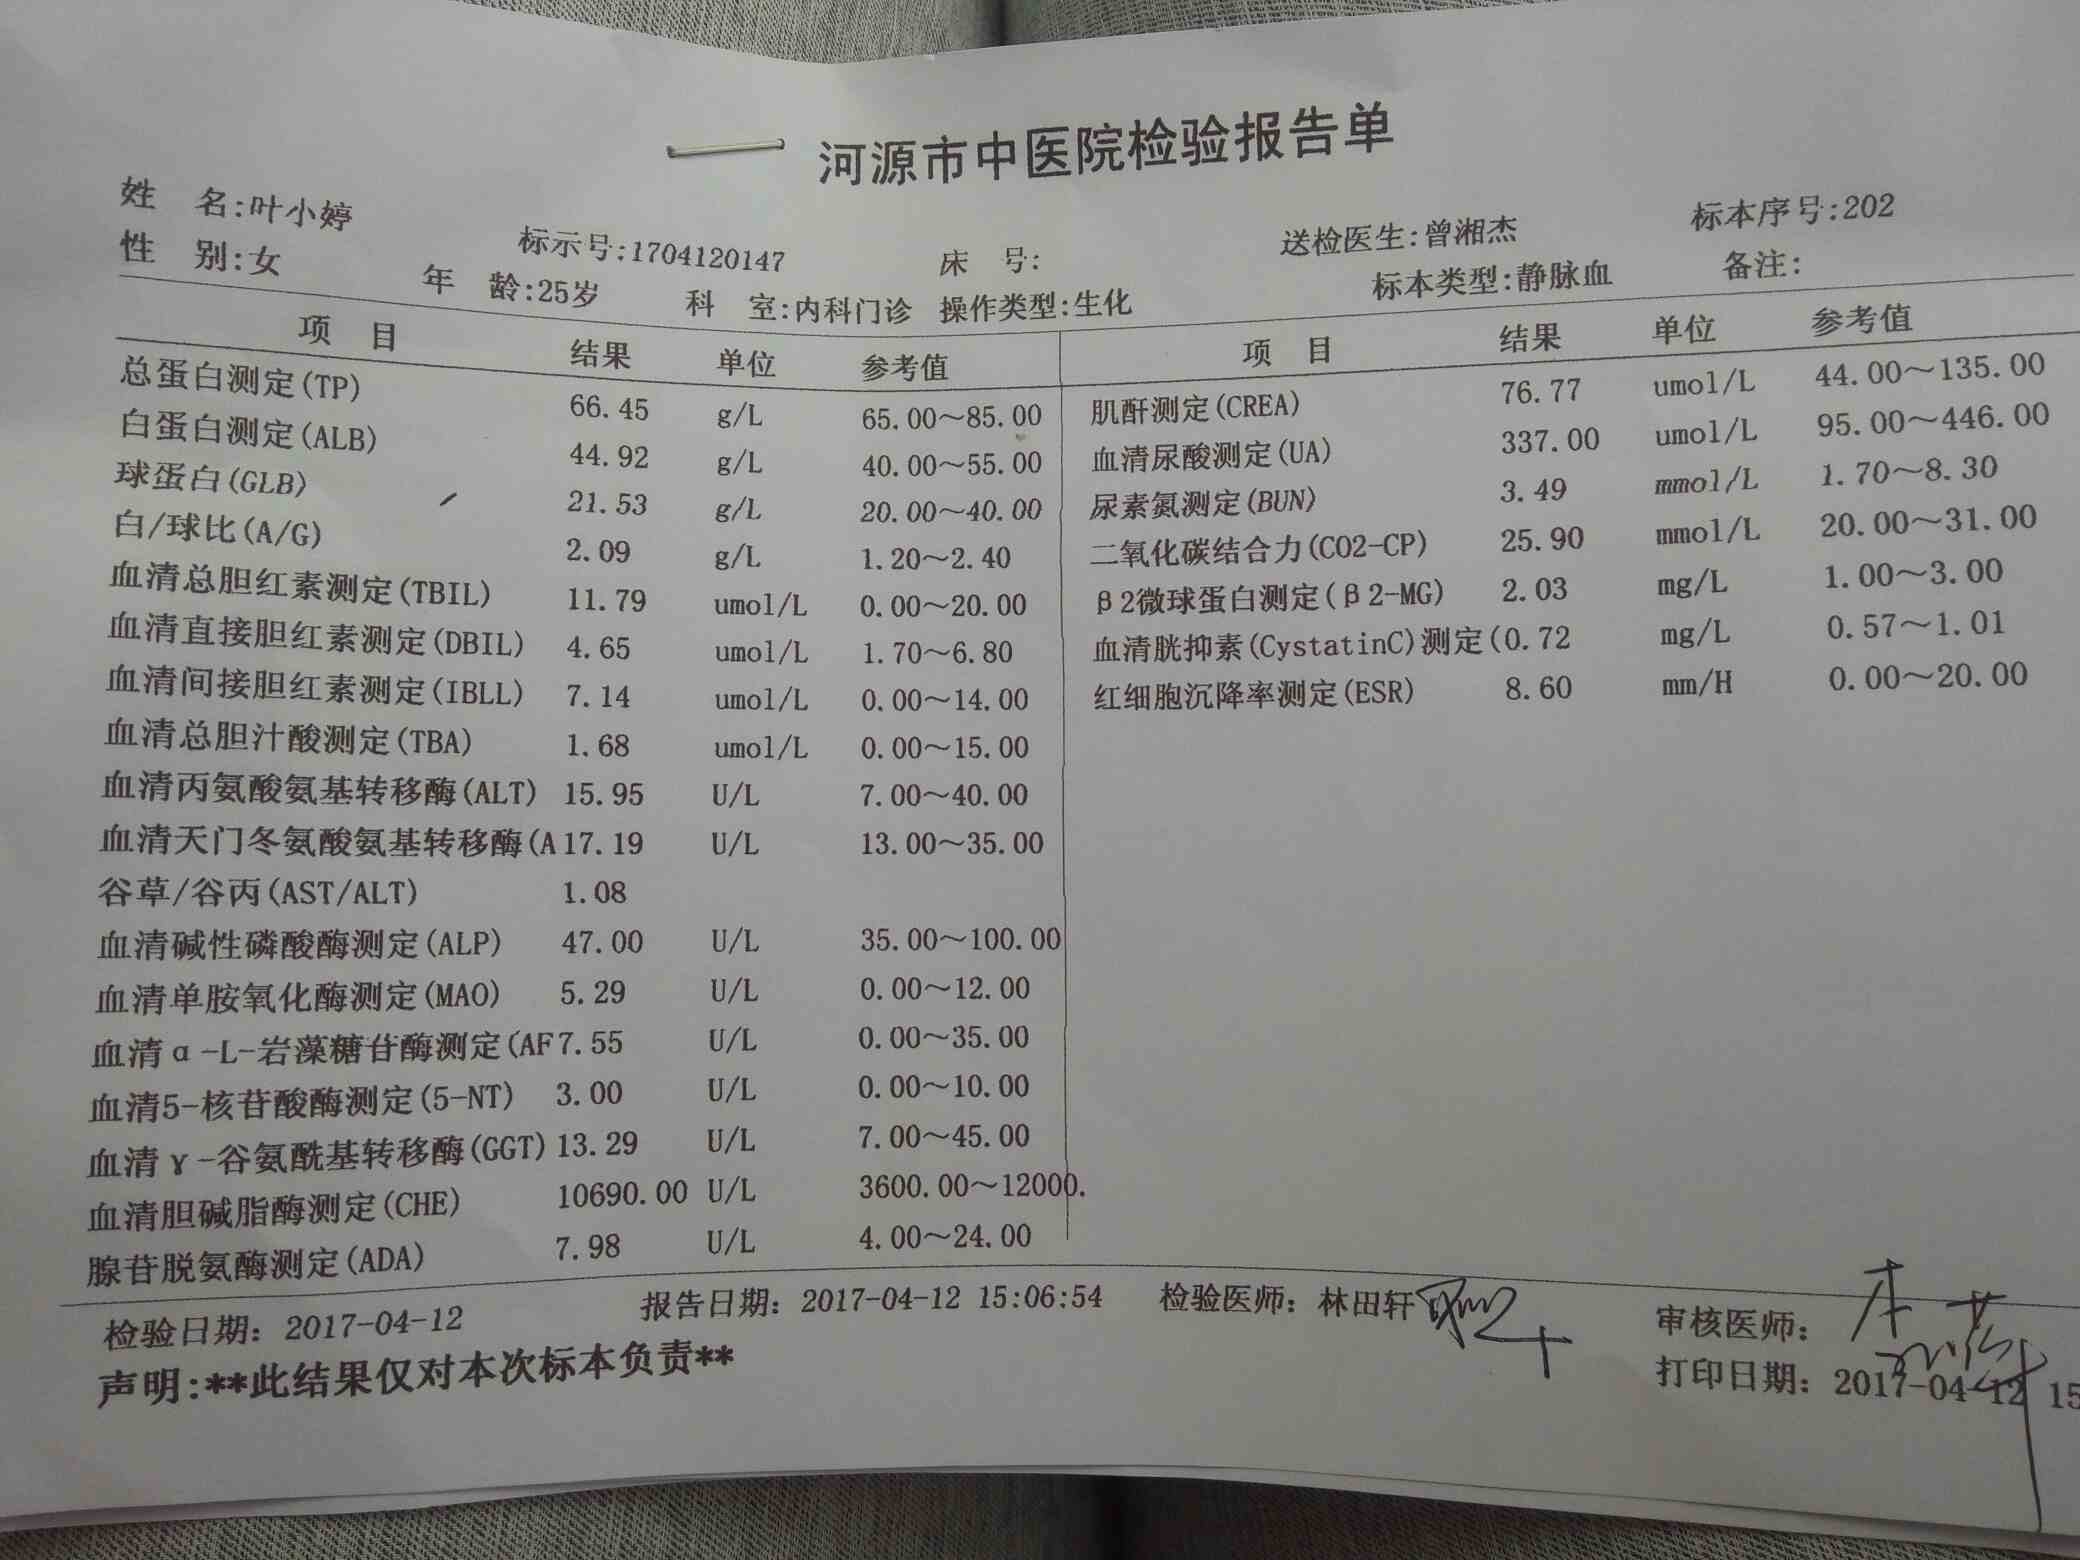 河源市中医院检验报告单
姓 名:叶小婷 标示号:1704120147 床 号: 送检医生:曾湘杰 标本序号:202
性 别:女 年 龄:25岁 科 室:内科门诊 操作类型:生化 标本类型:静脉血 备注:
项 目 结果 单位 参考值
总蛋白测定(TP) 66.45 g/L 65.00～85.00
白蛋白测定(ALB) 44.92 g/L 40.00～55.00
球蛋白(GLB) 21.53 g/L 20.00～40.00
白/球比(A/G) 2.09 g/L 1.20～2.40
血清总胆红素测定(TBIL) 11.79 umol/L 0.00～20.00
血清直接胆红素测定(DBIL) 4.65 umol/L 1.70～6.80
血清间接胆红素测定(IBLL) 7.14 umol/L 0.00～14.00
血清总胆汁酸测定(TBA) 1.68 umol/L 0.00～15.00
血清丙氨酸氨基转移酶(ALT) 15.95 U/L 7.00～40.00
血清天门冬氨酸氨基转移酶(A 17.19 U/L 13.00～35.00
谷草/谷丙(AST/ALT) 1.08
血清碱性磷酸酶测定(ALP) 47.00 U/L 35.00～100.00
血清单胺氧化酶测定(MAO) 5.29 U/L 0.00～12.00
血清α-L-岩藻糖苷酶测定(AF 7.55 U/L 0.00～35.00
血清5-核苷酸酶测定(5-NT) 3.00 U/L 0.00～10.00
血清γ-谷氨酰基转移酶(GGT) 13.29 U/L 7.00～45.00
血清胆碱脂酶测定(CHE) 10690.00 U/L 3600.00～12000.
腺苷脱氨酶测定(ADA) 7.98 U/L 4.00～24.00
项 目 结果 单位 参考值
肌酐测定(CREA) 76.77 umol/L 44.00～135.00
血清尿酸测定(UA) 337.00 umol/L 95.00～446.00
尿素氮测定(BUN) 3.49 mmol/L 1.70～8.30
二氧化碳结合力(CO2-CP) 25.90 mmol/L 20.00～31.00
β2微球蛋白测定(β2-MG) 2.03 mg/L 1.00～3.00
血清胱抑素(CystatinC)测定( 0.72 mg/L 0.57～1.01
红细胞沉降率测定(ESR) 8.60 mm/H 0.00～20.00
检验日期: 2017-04-12 报告日期: 2017-04-12 15:06:54 检验医师: 林田轩 审核医师:
声明:**此结果仅对本次标本负责** 打印日期: 2017-04-12 15